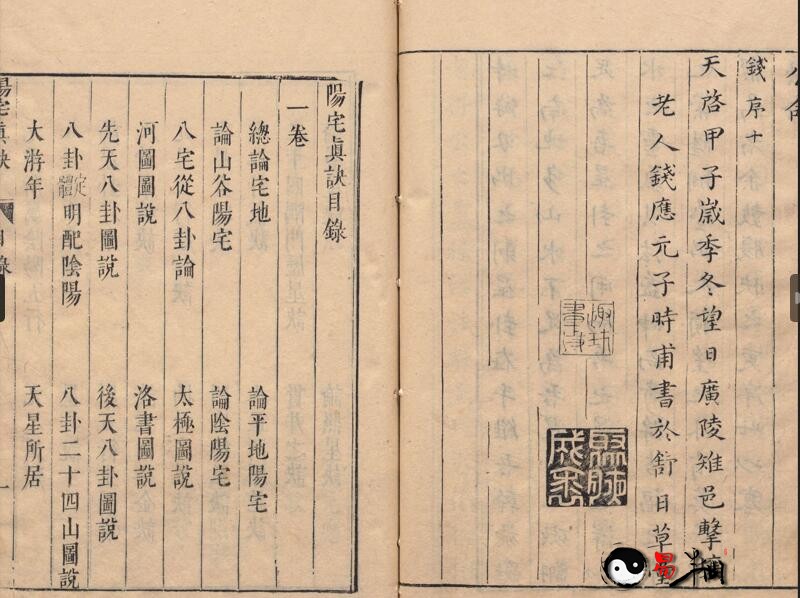 錢序十
天啓甲子嵗季冬望日廣陵雉邑擊
老人錢應元子時甫書於舒日草
陽宅眞訣目錄
一卷
總論宅地 論平地陽宅
論山谷陽宅 論陰陽宅
八宅從八卦論 太極圖說
河圖圖說 洛書圖說
先天八卦圖說 後天八卦圖說
八卦定體明配陰陽 八卦二十四山圖說
大游年 天星所居
陽宅眞訣 目錄 一
易